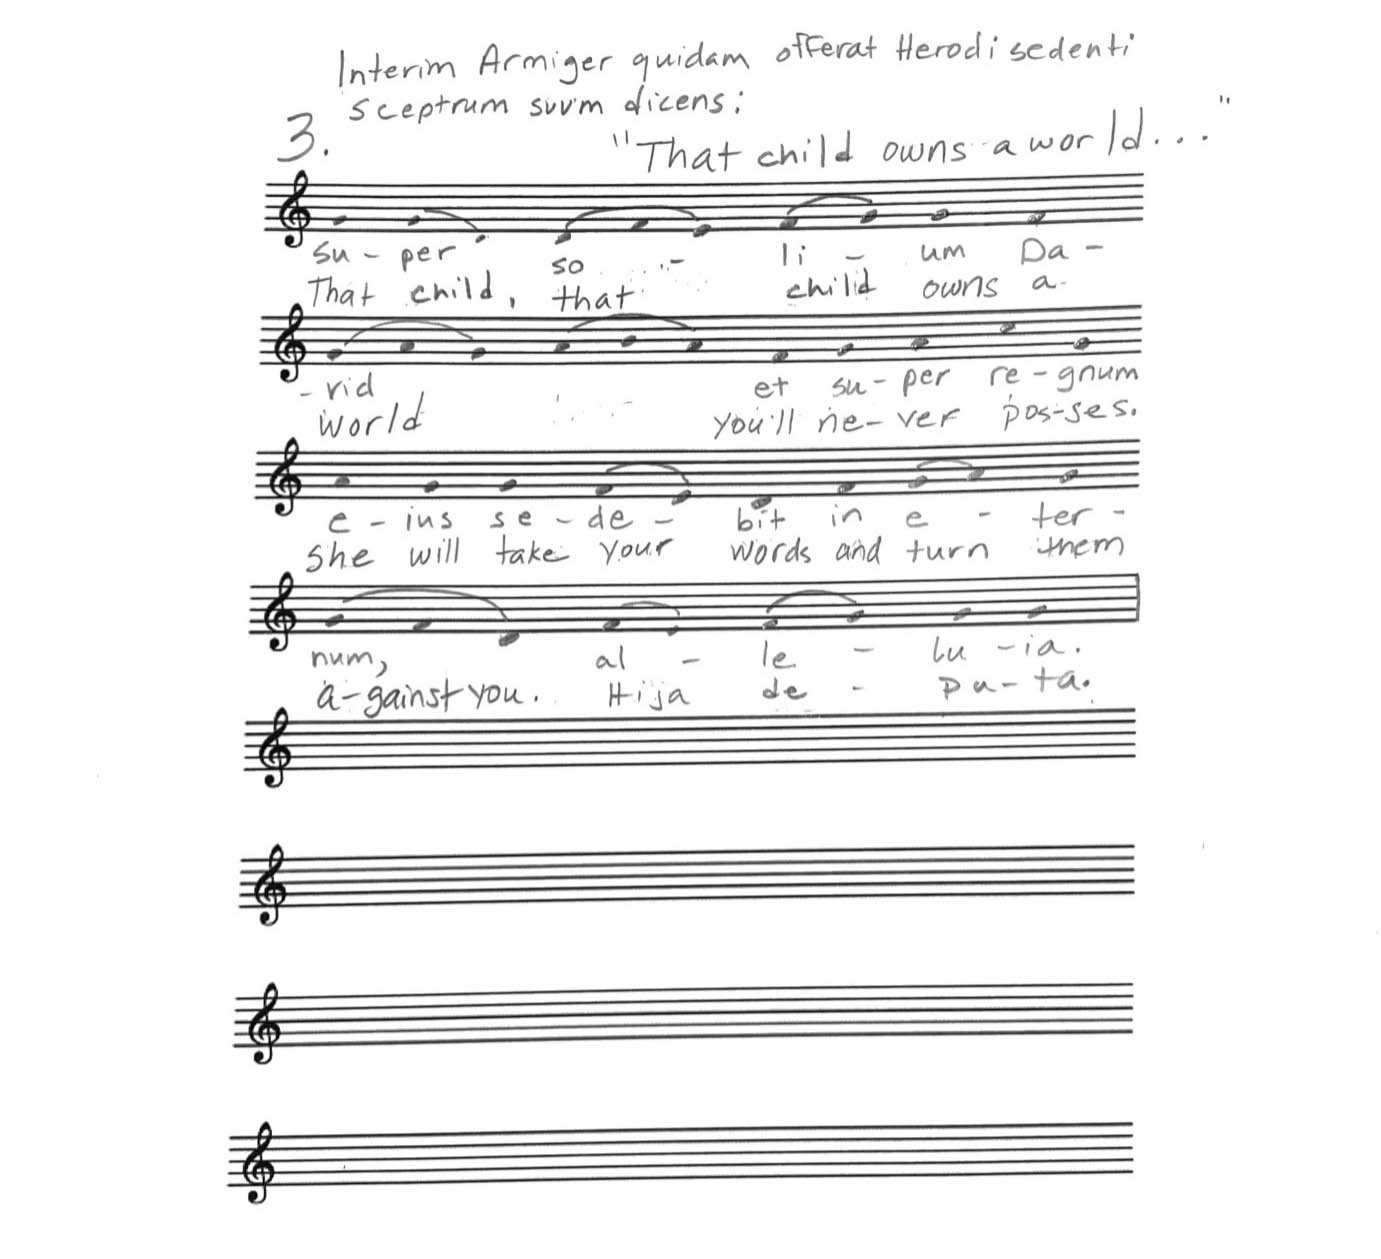 Interim Armiger quidam offerat Herodi sedenti
sceptrum suum dicens:
3.
"That child owns a world..."
su - per so - li - um Da -
That child, that child owns a
- vid et su - per re - gnum
world you'll ne - ver pos - ses.
e - ius se - de - bit in e - ter -
She will take your words and turn them
num, al - le - lu - ia.
a - gainst you. Hija de - pu - ta.